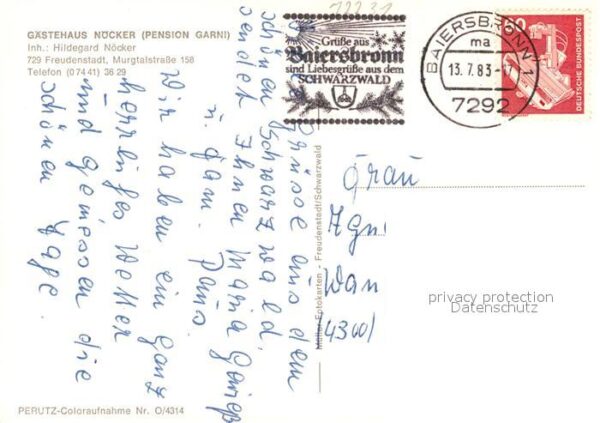 GÄSTEHAUS NÖCKER (PENSION GARNI)
Inh.: Hildegard Nöcker
729 Freudenstadt, Murgtalstraße 158
Telefon (07441) 3629
Grüße aus
Baiersbronn
sind Liebesgrüße aus dem
SCHWARZWALD
BAIERSBRONN 1
ma
13.7.83
7292
DEUTSCHE BUNDESPOST
Grüsse aus dem
schönen Schwarzwald,
sendet Ihnen Maria
u. Fam.
Wir haben ein ganz
herrliches Wetter
und geniessen die
schönen Tage.
Müller Fotokarten - Freudenstadt/Schwarzwald
(4300)
privacy protection
Datenschutz
PERUTZ-Coloraufnahme Nr. O/4314